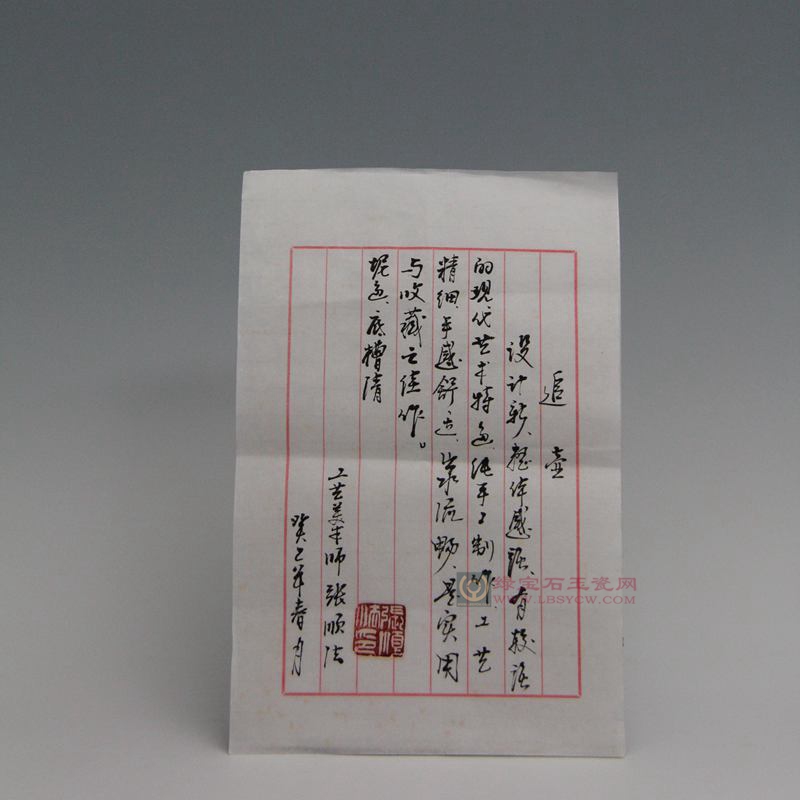 追 壶
设计新、整体感强、有较强
的现代艺术特色、纯手工制作、工艺
精细、手感舒适、出水流畅、是实用
与收藏之佳作。
坭色、底槽清
工艺美术师 张顺法
癸巳年春月
张顺法印
绿宝石玉瓷网
WWW.LBSYCW.COM